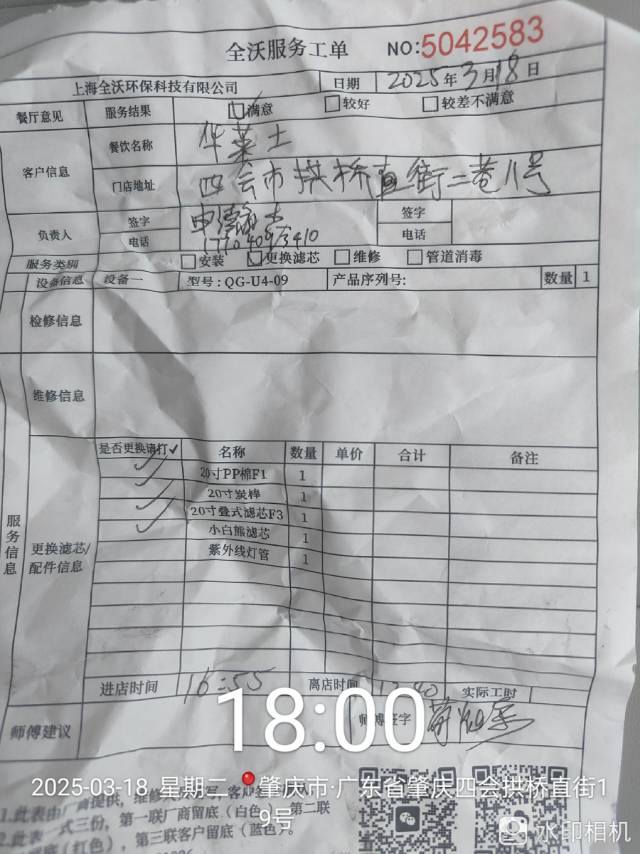 全沃服务工单 NO:5042583
上海全沃环保科技有限公司 日期 2025年3月18日
餐厅意见 服务结果 满意 较好 较差不满意
客户信息 餐饮名称 华莱士
门店地址 四会市拱桥直街二巷11号
负责人 签字 签字
电话 电话
服务类别 安装 更换滤芯 维修 管道消毒
设备信息 设备一 型号:QG-U4-09 产品序列号: 数量 1
检修信息
维修信息
服务信息
更换滤芯/配件信息
是否更换请打✓ 名称 数量 单价 合计 备注
✓ 20寸PP棉F1 1
✓ 20寸炭棒 1
✓ 20寸叠式滤芯F3 1
✓ 小白熊滤芯 1
紫外线灯管 1
进店时间 16:55 离店时间 实际工时
师傅建议 师傅签字
18:00
2025-03-18 星期二 肇庆市·广东省肇庆四会拱桥直街1
9号
1.此表由厂商提供,维修
2.此表一式三份,第一联厂商留底(白色),第二联
留底(红色),第三联客户留底(蓝色)。
水印相机